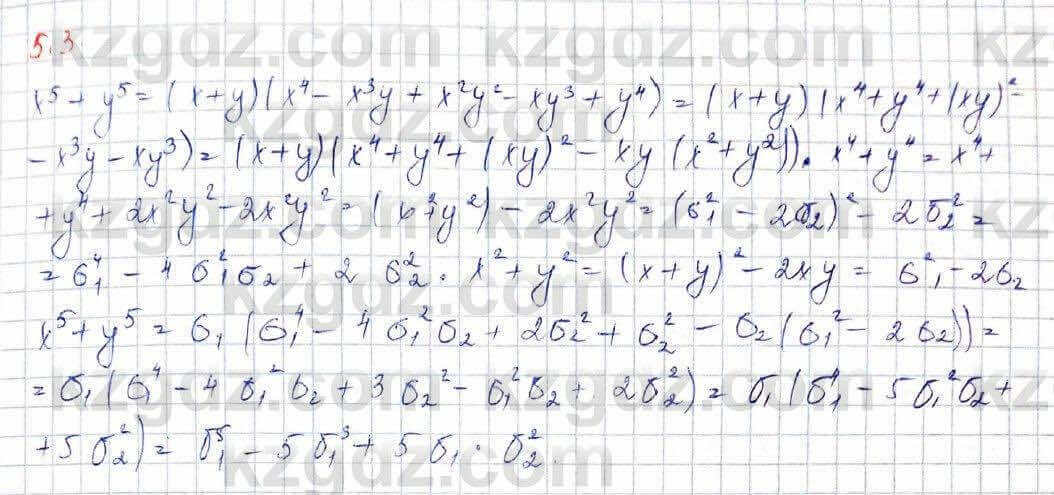 5.3
x⁵ + y⁵ = (x+y)(x⁴ - x³y + x²y² - xy³ + y⁴) = (x+y)(x⁴+y⁴+(xy)² -
- x³y - xy³) = (x+y)(x⁴+y⁴+(xy)² - xy(x²+y²)). x⁴+y⁴ = x⁴+
+y⁴ + 2x²y² - 2x²y² = ( y²) - 2x²y² = (σ₁² - 2σ₂)² - 2σ₂² =
= σ₁⁴ - 4σ₁²σ₂ + 2σ₂². x²+y² = (x+y)² - 2xy = σ₁² - 2σ₂
x⁵+y⁵ = σ₁(σ₁⁴ - 4σ₁²σ₂ + 2σ₂² + σ₂² - σ₂(σ₁² - 2σ₂)) =
= σ₁(σ₁⁴ - 4σ₁²σ₂ + 3σ₂² - σ₁²σ₂ + 2σ₂²) = σ₁(σ₁⁴ - 5σ₁²σ₂ +
+ 5σ₂²) = σ₁⁵ - 5σ₁³ + 5σ₁ · σ₂².
kzgdz.com